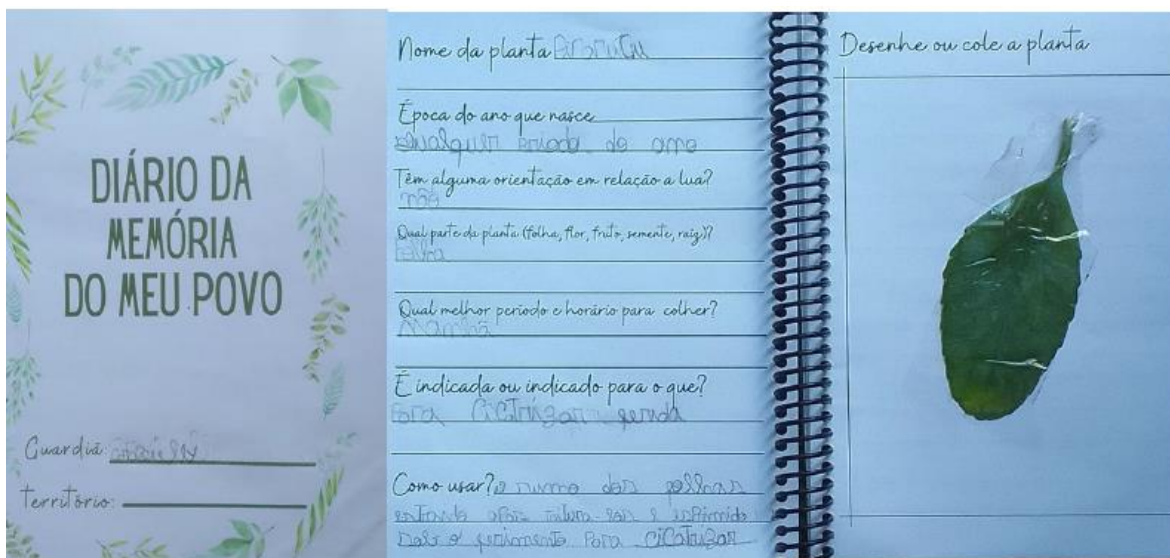 DIÁRIO DA
MEMÓRIA
DO MEU POVO
Guardiã:
Território:
Nome da planta Piraruсu
Época do ano que nasce
qualquer priodo do ano
Têm alguma orientação em relação a lua?
não
Qual parte da planta (folha, flor, fruto, semente, raiz)?
Folha
Qual melhor período e horário para colher?
Manhã
É indicada ou indicado para o que?
Para cicatrizar ferida
Como usar? o sumo das folhas
e
sobre o ferimento Para cicatrizar
Desenhe ou cole a planta